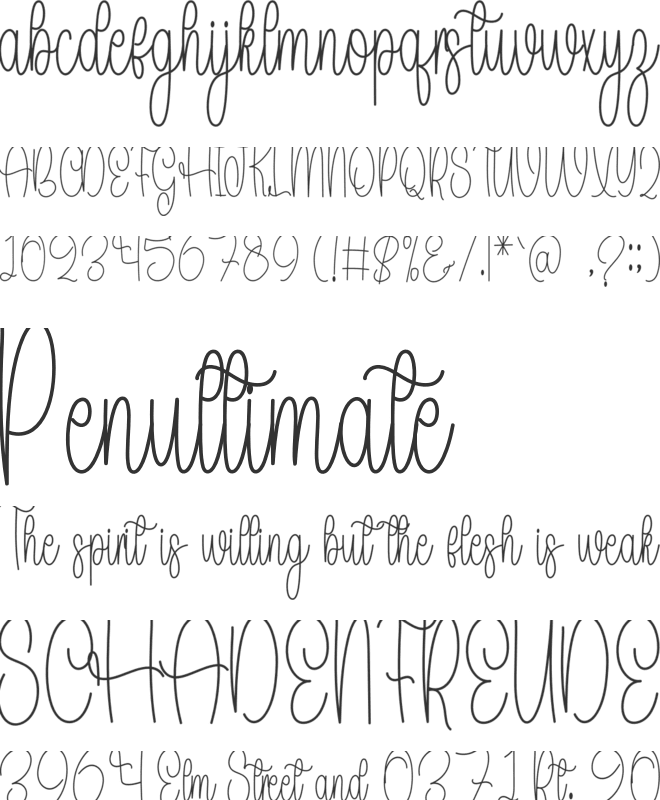 abcdefghijklmnopqrstuvwxyz
ABCDEFGHIJKLMNOPQRSTUVWXYZ
1023456789 (!#$%&/.|*`@ ,?:;)
Penultimate
The spirit is willing but the flesh is weak
SCHADENFREUDE
3964 Elm Street and 0371 Rt. 90